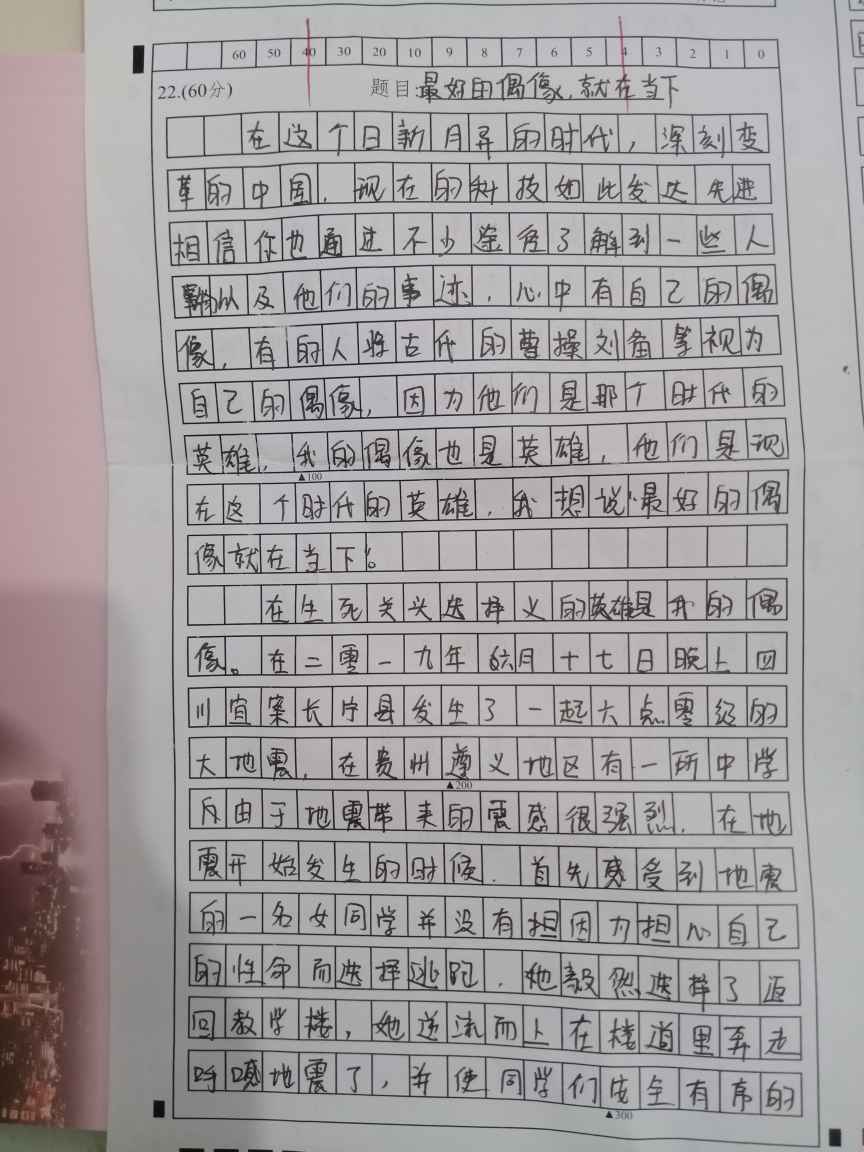 60 50 40 30 20 10 9 8 7 6 5 4 3 2 1 0
22.(60分) 题目:最好的偶像,就在当下
在这个日新月异的时代,深刻变
革的中国,现在的科技如此发达先进
相信你也通过不少途径了解到一些人
物以及他们的事迹,心中有自己的偶
像,有的人将古代的曹操刘备等视为
自己的偶像,因为他们是那个时代的
英雄,我的偶像也是英雄,他们是现
▲100
在这个时代的英雄,我想说“最好的偶
像就在当下”。
在生死关头选择义的英雄是我的偶
像。在二零一九年六月十七日晚上四
川宜宾长宁县发生了一起六点零级的
大地震,在贵州遵义地区有一所中学
▲200
由于地震带来的震感很强烈,在地
震开始发生的时候,首先感受到地震
的一名女同学并没有担因为担心自己
的性命而选择逃跑,她毅然选择了返
回教学楼,她逆流而上在楼道里奔走
呼喊地震了,并使同学们安全有序的
▲300